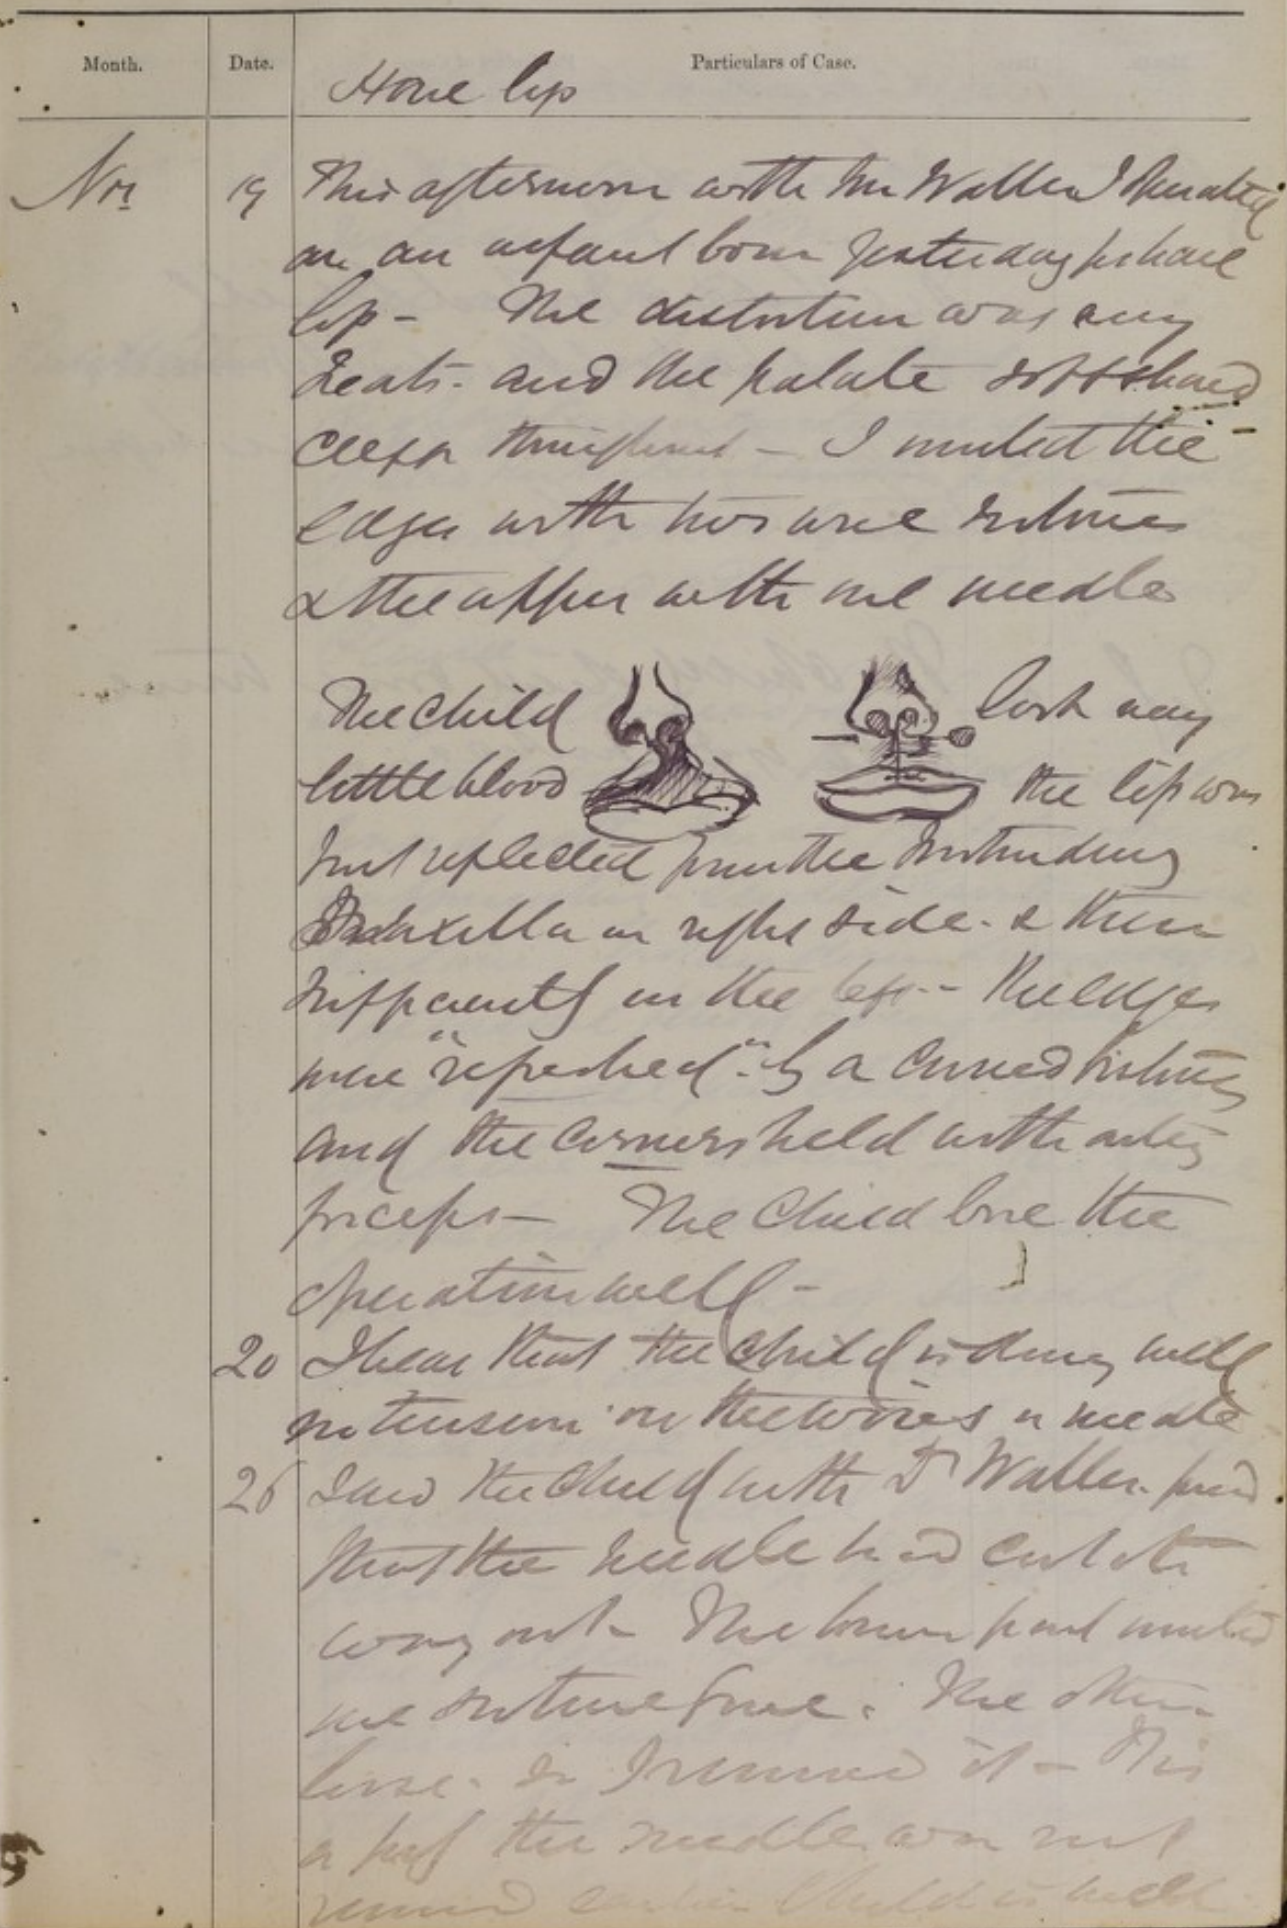 Month.
Date.
Particulars of Case.
Hare lip
Nov
19
This afternoon with Mr Waller I operated
on an infant born yesterday for hare
lip - The distortion was very
great. and the palate soft & hard
cleft throughout - I united the
edges with two wire sutures
& the upper with one needle
The child lost very
little blood the lip was
first reflected from the protruding
maxilla on right side. & then
sufficiently on the left - The edges
were "refreshed" by a curved bistoury
and the corners held with artery
forceps - The Child bore the
operation well -
20 I hear that the child is doing well
no tension on the wires or needle
26 I saw the child with Dr Waller. found
that the needle had cut its
way out - The lower part united
one suture free. The other
loose. so I removed it - This
a pity the needle was not
removed earlier Child is well